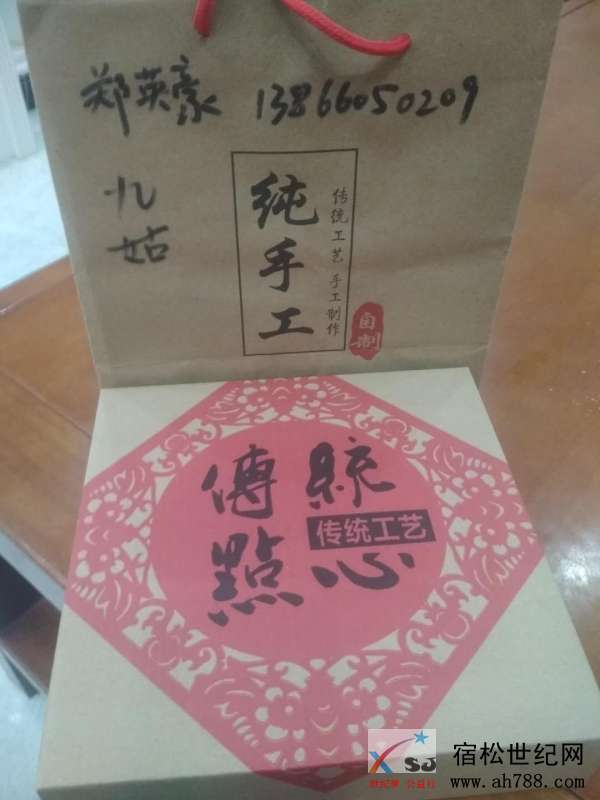 郑英豪 13866050209
九姑
纯手工
传统工艺 手工制作
自制
傳統
點心
传统工艺
XSJ
世纪梦 公益行
宿松世纪网
www.ah788.com